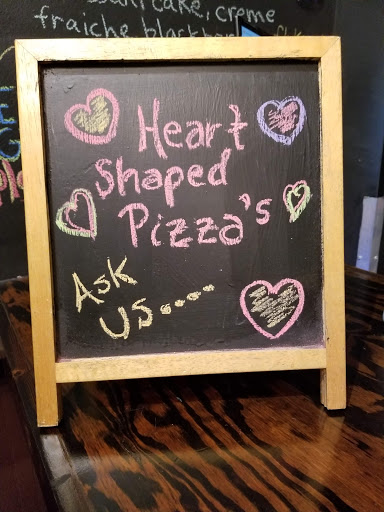 cake, creme
fraiche
Heart
Shaped
Pizza's
Ask
Us....